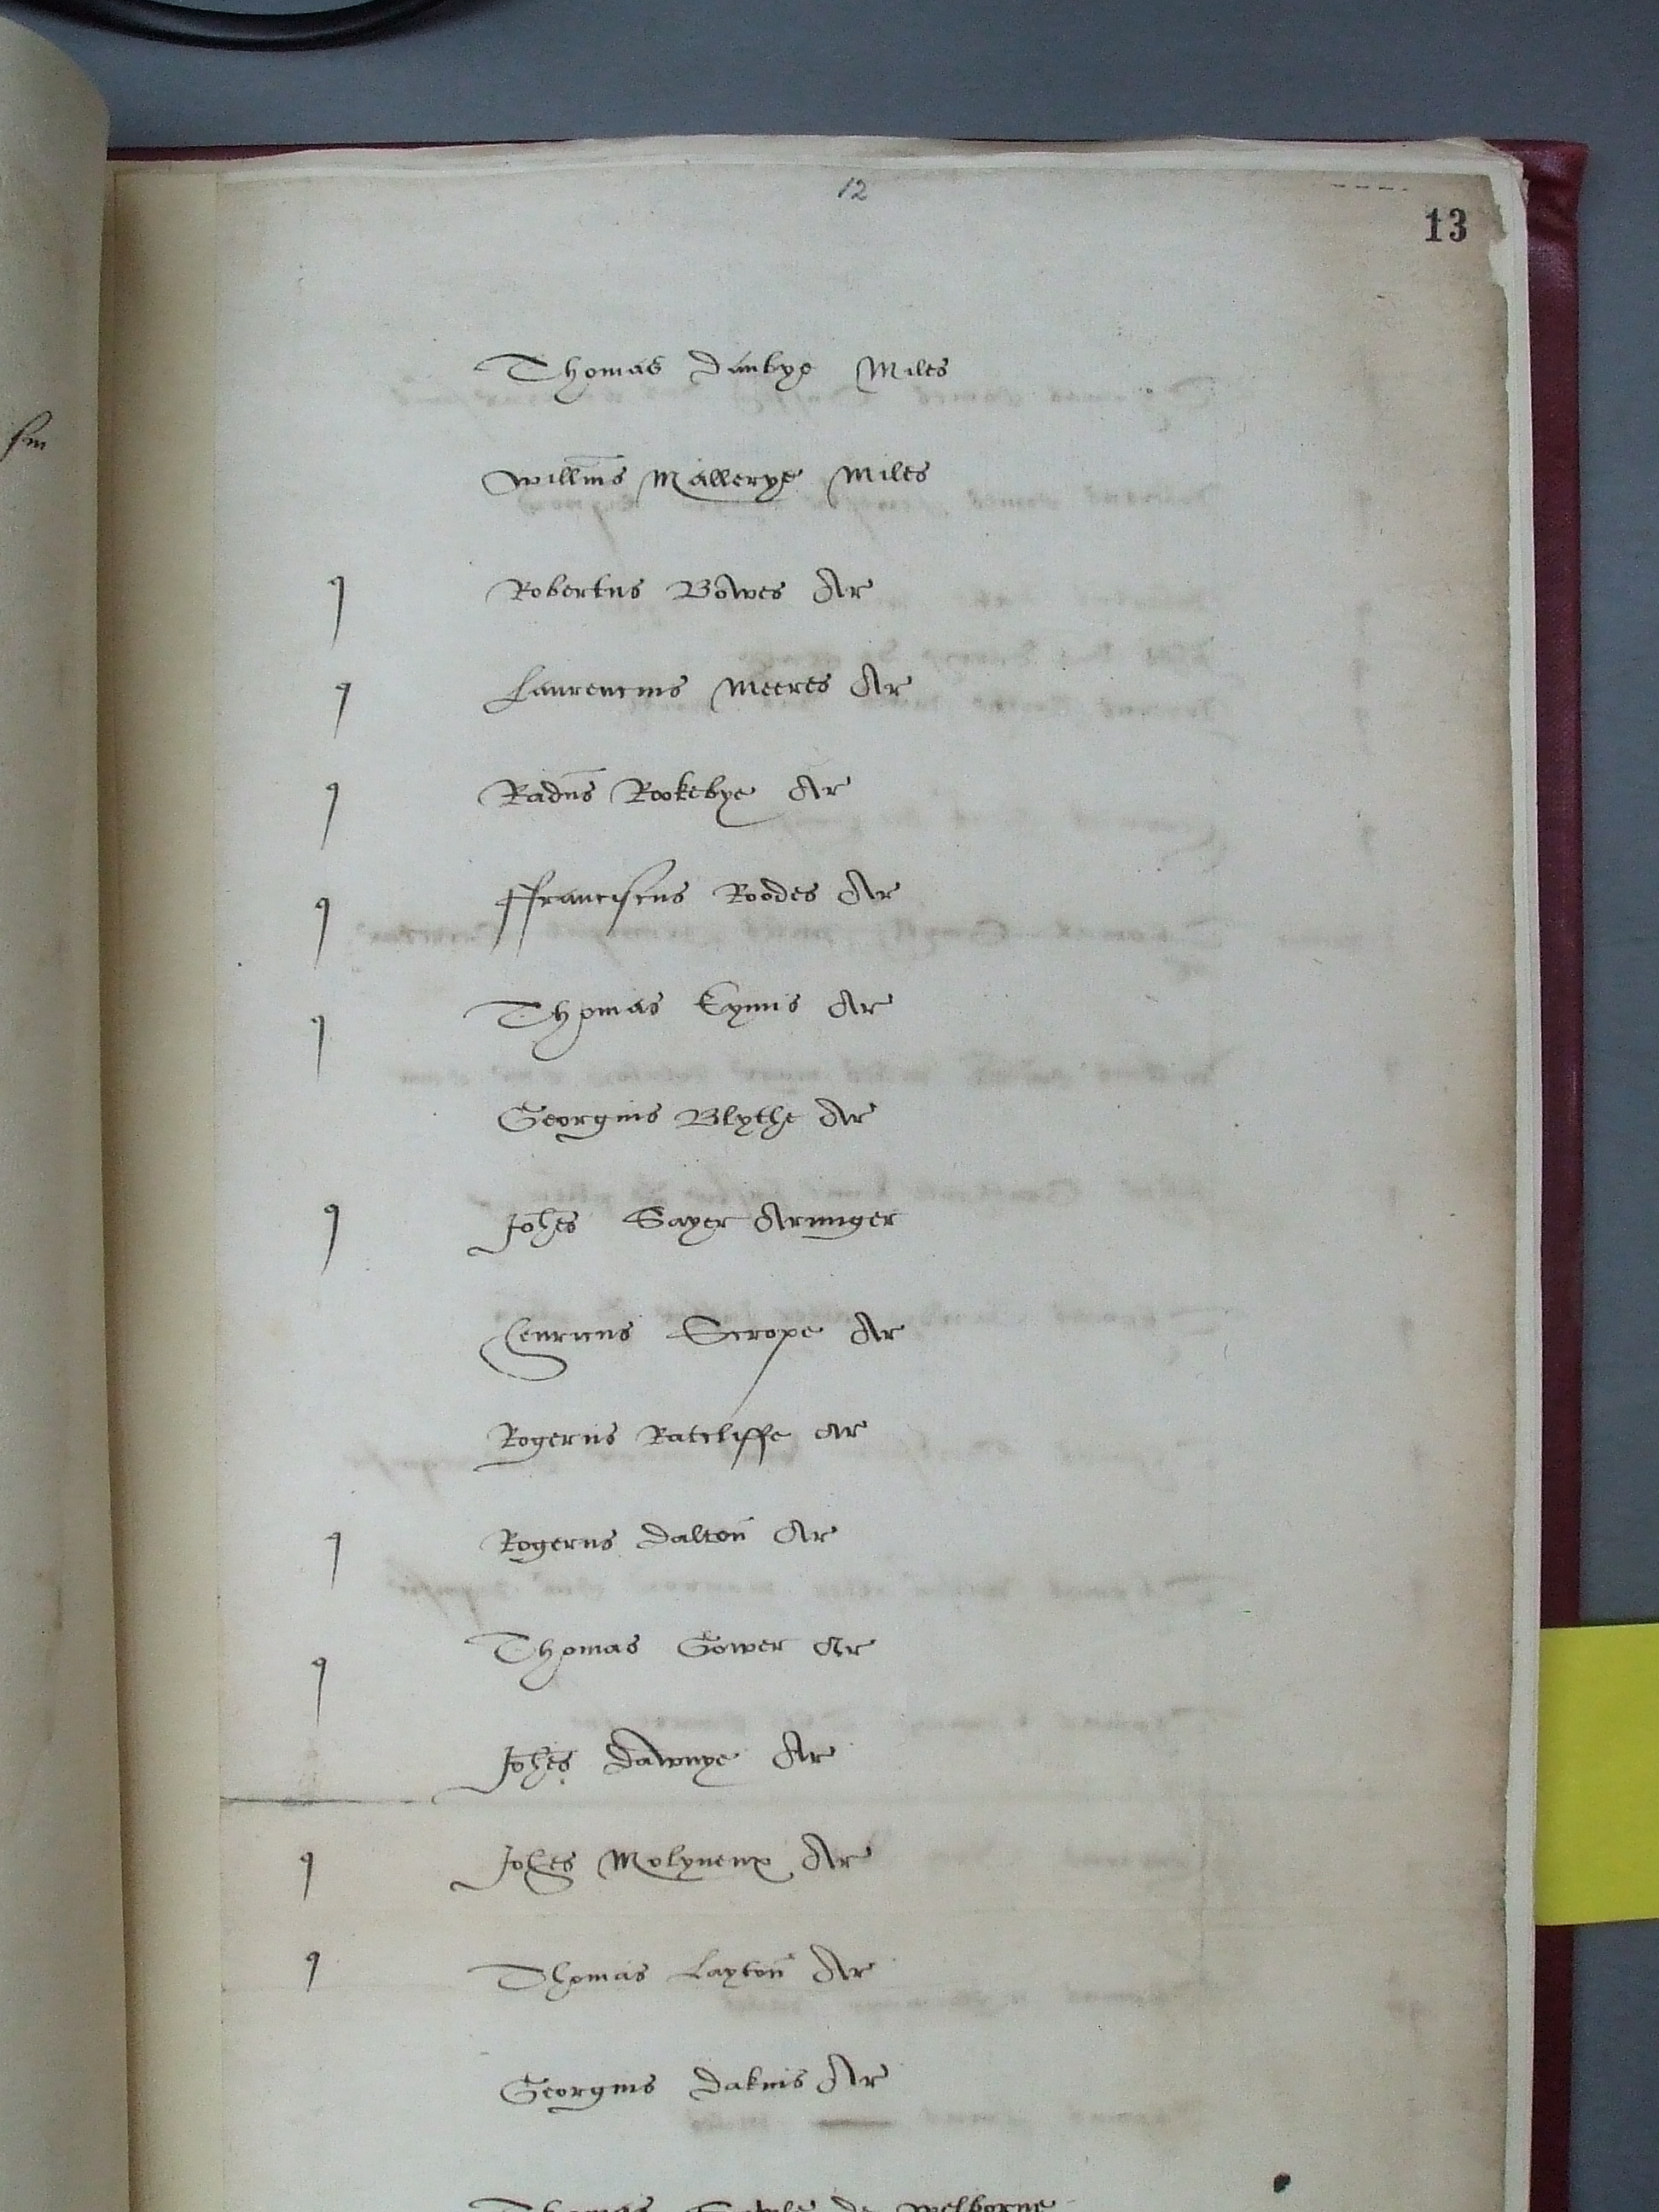 12
13
Thomas Danbye Miles
Willms Mallerye Miles
q Robertus Bowes Ar
q Laurencius Meeres Ar
q Radus Rookebye Ar
q ffranciscus Roodes Ar
q Thomas Eynns Ar
Georgius Blythe Ar
q Johes Sayer Armiger
Henricus Scrope Ar
Rogerus Ratcliffe Ar
q Rogerus Dalton Ar
q Thomas Gower Ar
Johes Dawnye Ar
q Johes Molyneux Ar
q Thomas Layton Ar
Georgius Dakins Ar
Thomas de Welborne